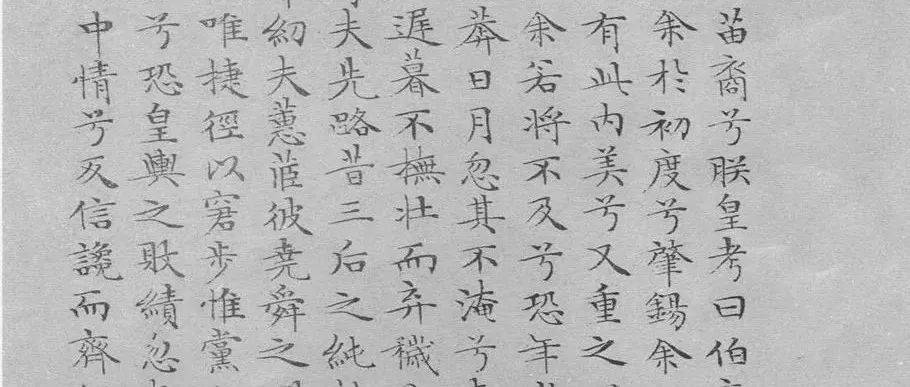 苗裔兮朕皇考曰伯
余於初度兮肇錫余
有此内美兮又重之
余若將不及兮恐年
莽日月忽其不淹兮
遲暮不撫壯而弃穢
夫先路昔三后之純
紉夫蕙茝彼堯舜之
唯捷徑以窘步惟黨
兮恐皇輿之敗績忽
中情兮反信讒而齊